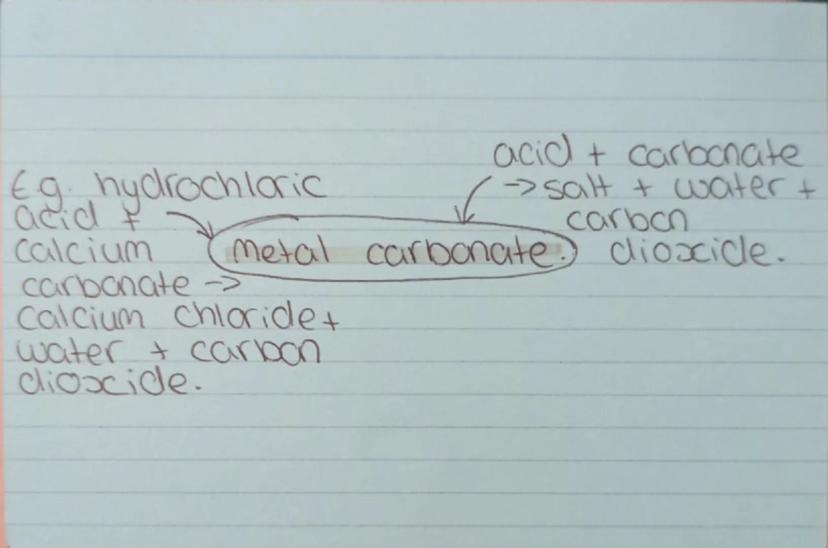 acid + carbonate
-> salt + water +
carbon
dioxide.
Eg. hydrochloric
acid +
calcium
carbonate ->
calcium chloride +
water + carbon
dioxide.
metal carbonate.